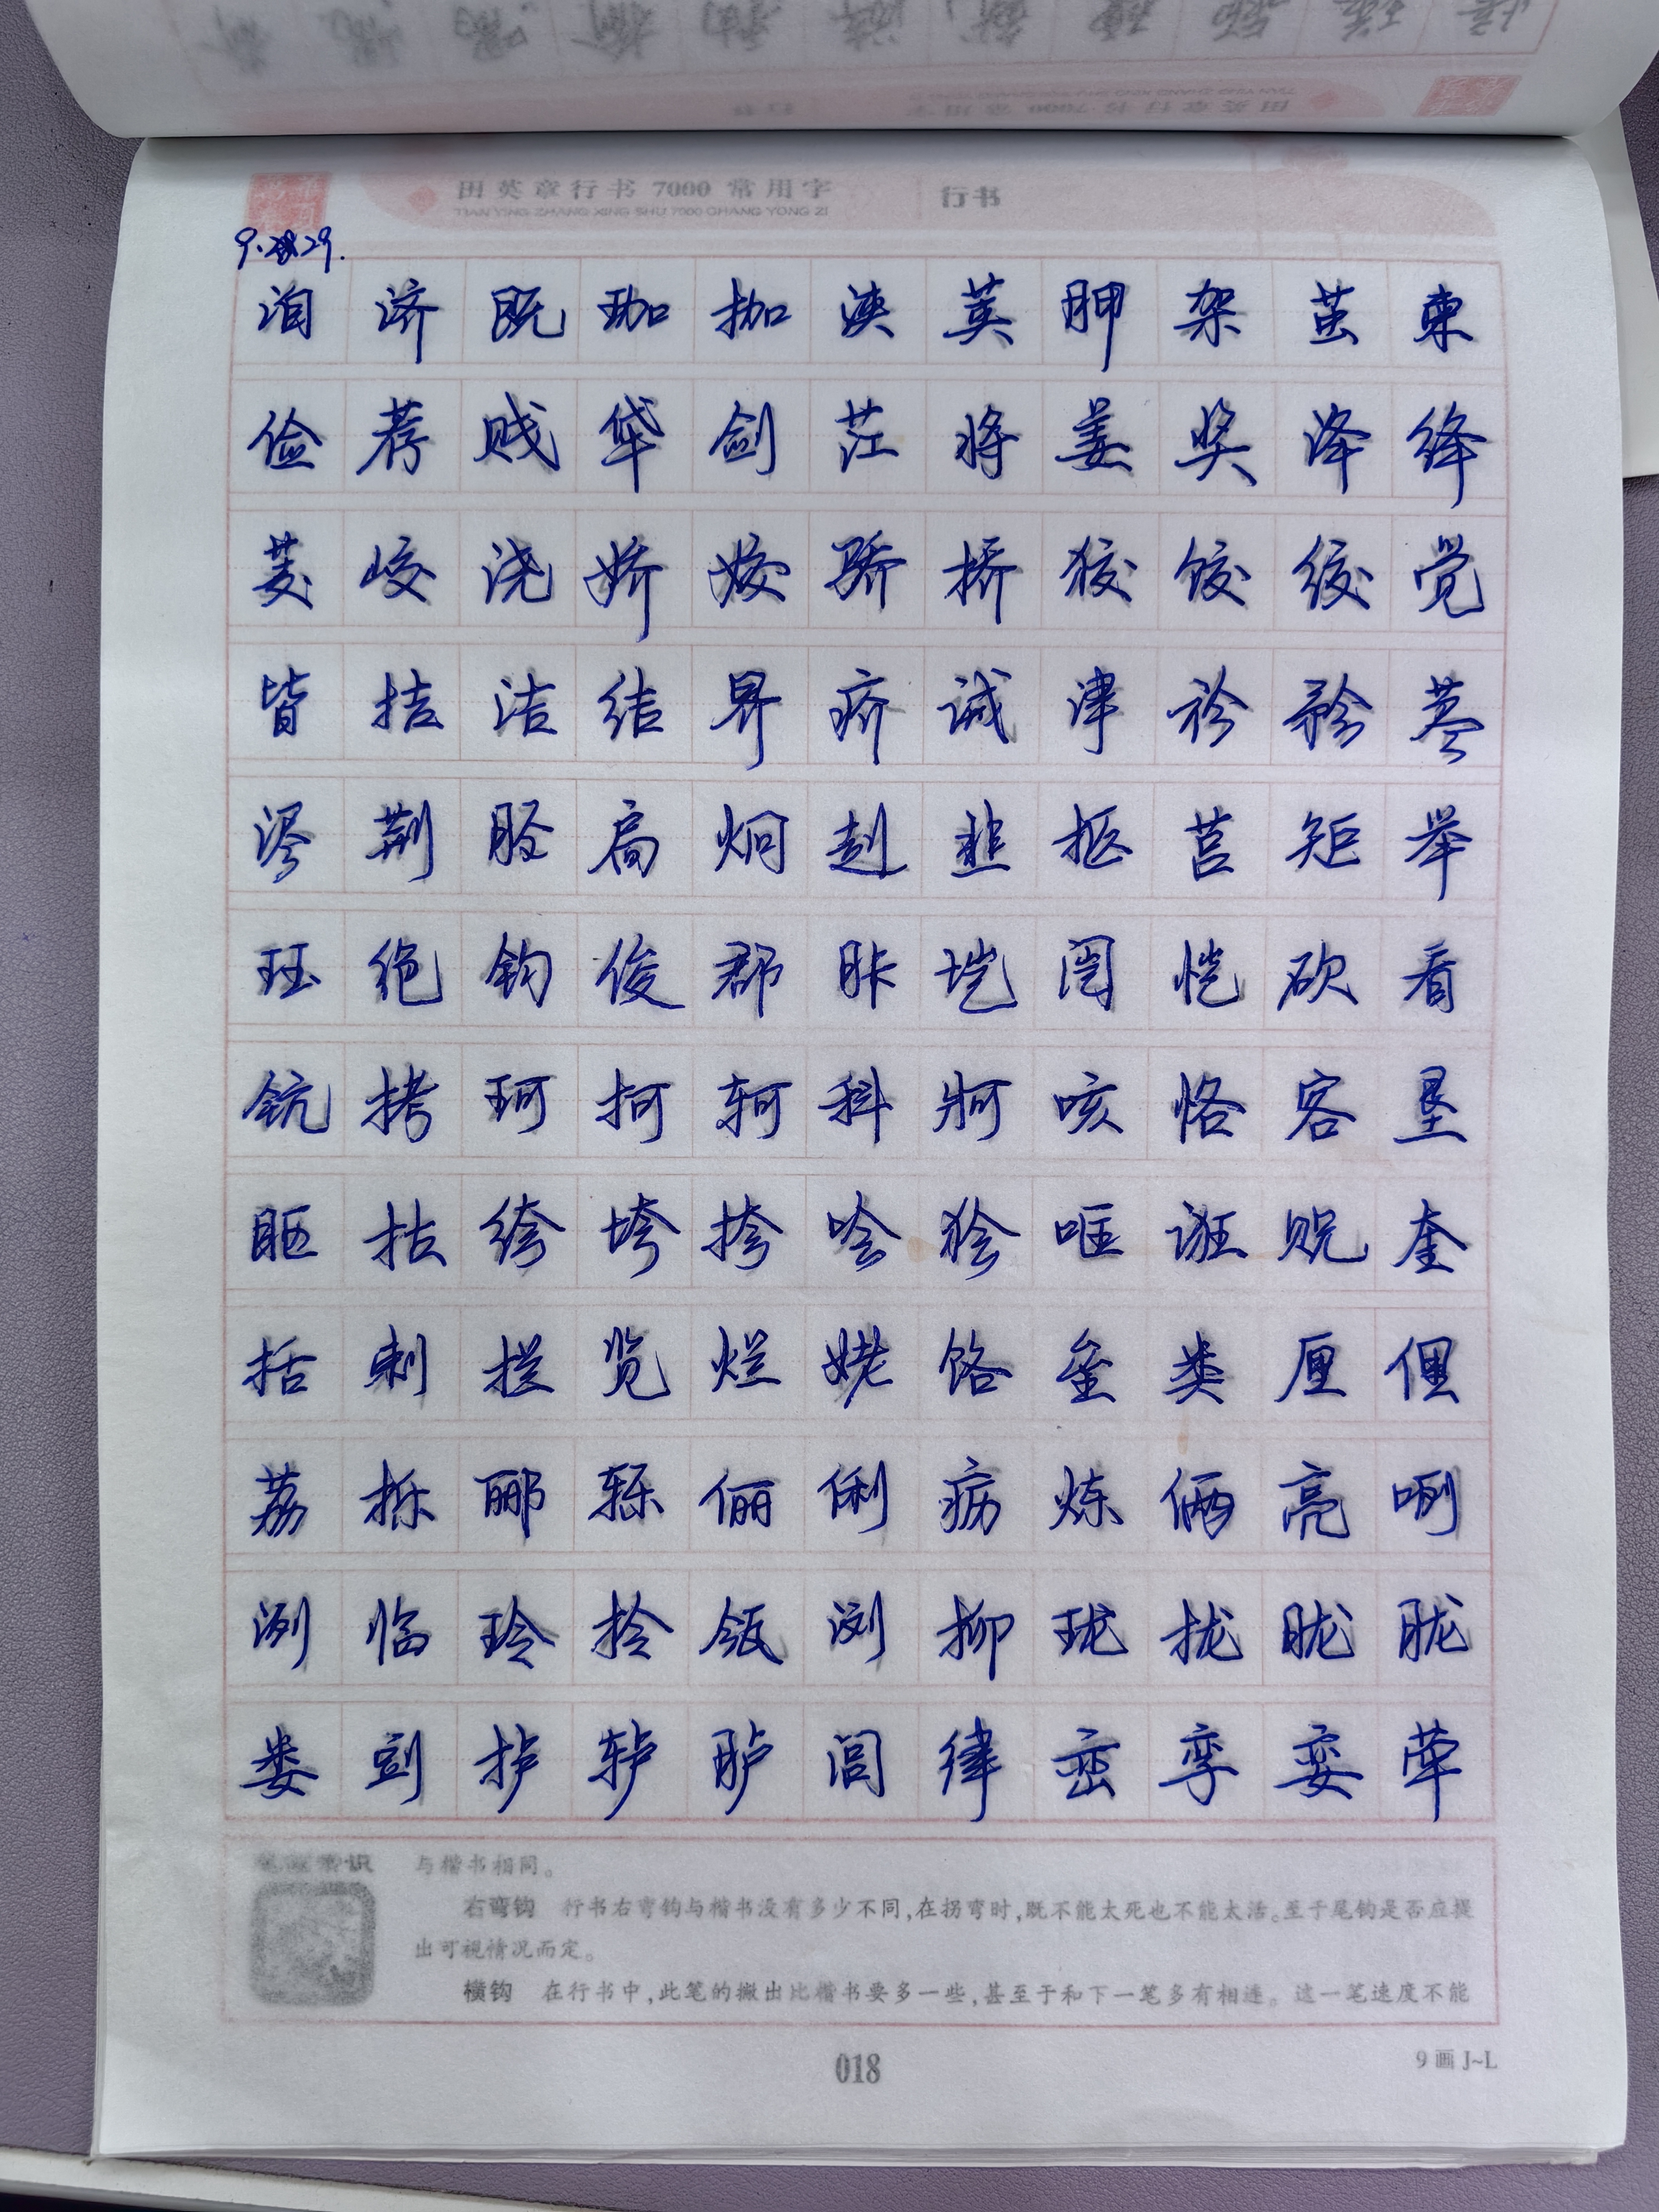 田英章行书 7000 常用字 行书
TIAN YING ZHANG XING SHU 7000 CHANG YONG ZI
9.29.
洎 济 既 珈 枷 浃 荚 胛 架 茧 柬
俭 荐 贱 牮 剑 茳 将 姜 奖 洚 绛
茭 峧 浇 娇 姣 骄 挢 狡 饺 绞 觉
皆 拮 洁 结 界 疥 诫 津 衿 矜 荩
浕 荆 胫 扃 炯 赳 韭 抠 莒 矩 举
珏 绝 钧 俊 郡 胩 垲 闿 恺 砍 看
钪 拷 珂 柯 轲 科 牁 咳 恪 客 垦
眍 枯 绔 垮 挎 哙 狯 哐 诓 贶 奎
括 剌 拦 览 烂 姥 饹 垒 类 厘 俚
荔 栎 郦 轹 俪 俐 疬 炼 俩 亮 咧
洌 临 玲 拎 瓴 浏 柳 珑 拢 昽 胧
娄 剅 栌 轳 胪 闾 律 峦 孪 娈 荦
与楷书相同。
右弯钩 行书右弯钩与楷书没有多少不同,在拐弯时,既不能太死也不能太活。至于尾钩是否应提
出可视情况而定。
横钩 在行书中,此笔的撇出比楷书要多一些,甚至于和下一笔多有相连。这一笔速度不能
018
9 画 J~L